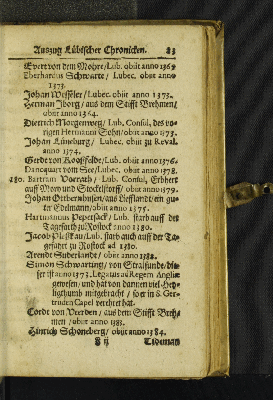 Auszug Lübischer Chronicken. 83
Evert von dem Mohre/Lub. obiit anno 1369
Eberhardus Schwarte/ Lubec. obiit anno
1373.
Johan Wesseler/ Lubec. obiit anno 1373.
Herman Iborg/ aus dem Stifft Brehmen/
obiit anno 1364.
Dietrich Morgenweg/ Lub. Consul, des vo-
rigen Hermanni Sohn/obiit anno 1373.
Johan Lüneburg/ Lubec. obiit zu Reval.
anno 1374.
Gerdt von /Lubec. obiit anno 1376.
von See/Lubec. obiit anno 1378.
180. Bertram Vorrath/ Lub. Consul, Erbherr
auff Mory und Stockelstorff/ obiit anno 1379.
Johan aus Liefflandt/ein gu-
ter Edelmann/obiit anno 1375.
Hartmannus Pepersack/ Lub. starb auff der
Tagefarth zu Rostock anno 1380.
Jacob Pleskau/Lub. starb auch auff der Ta-
gefahrt zu Rostock ad 1380.
Arendt Suderlande/ obiit anno 1382.
Simon Schwarting/ von Stralsunde/die-
ser ist anno 1373. Legatus ad Regem Angliæ
gewesen/ und hat von dannen viel Hey-
ligthumb mitgebracht/ so er in S. Ger-
truden Capel verehret hat.
Cordt von Verden/ aus dem Stifft Breh-
men/ obiit anno 1383.
Hinrich Schoneberg/ obiit anno 1384.
ij Tideman